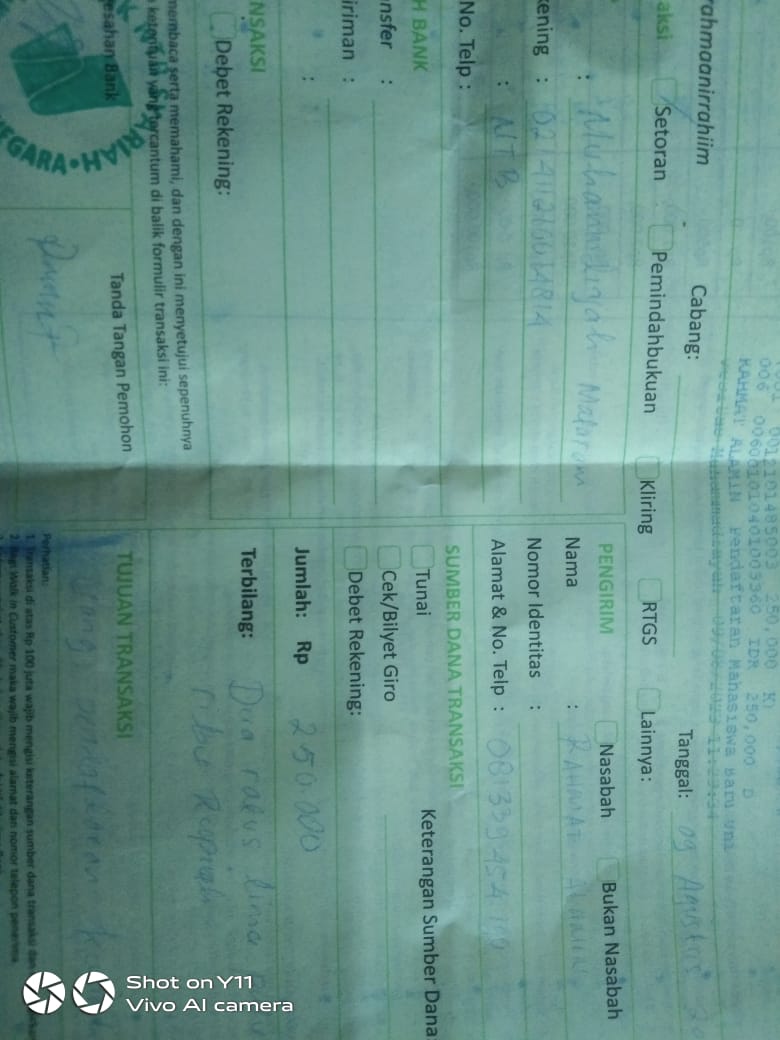 250,000 K
006 0060010401003360 IDR 250,000 D
RAHMAT ALAMIN Pendaftaran Mahasiswa Baru
11:23:34
rahmaanirrahiim
Cabang:
Tanggal: 09 Agustus
aksi
Setoran
Pemindahbukuan
Kliring
RTGS
Lainnya:
: Muhammdiyah Mataram
kening :
: NTB
No. Telp :
H BANK
nsfer :
iriman :
:
NSAKSI
Debet Rekening:
membaca serta memahami, dan dengan ini menyetujui sepenuhnya
ketentuan yang tercantum di balik formulir transaksi ini:
esahan Bank
Tanda Tangan Pemohon
RIAH
EGARA
PENGIRIM
Nasabah
Bukan Nasabah
Nama : RAHMAT ALAMIN
Nomor Identitas :
Alamat & No. Telp :
SUMBER DANA TRANSAKSI
Tunai
Keterangan Sumber Dana
Cek/Bilyet Giro
Debet Rekening:
Jumlah: Rp 250.000
Terbilang: Dua ratus lima
ribu Rupiah
TUJUAN TRANSAKSI
Perhatian:
1. Transaksi di atas Rp 100 juta wajib mengisi keterangan sumber dana transaksi dan
2. Bagi Walk in Customer maka wajib mengisi alamat dan nomor telepon penerima
Shot on Y11
Vivo AI camera